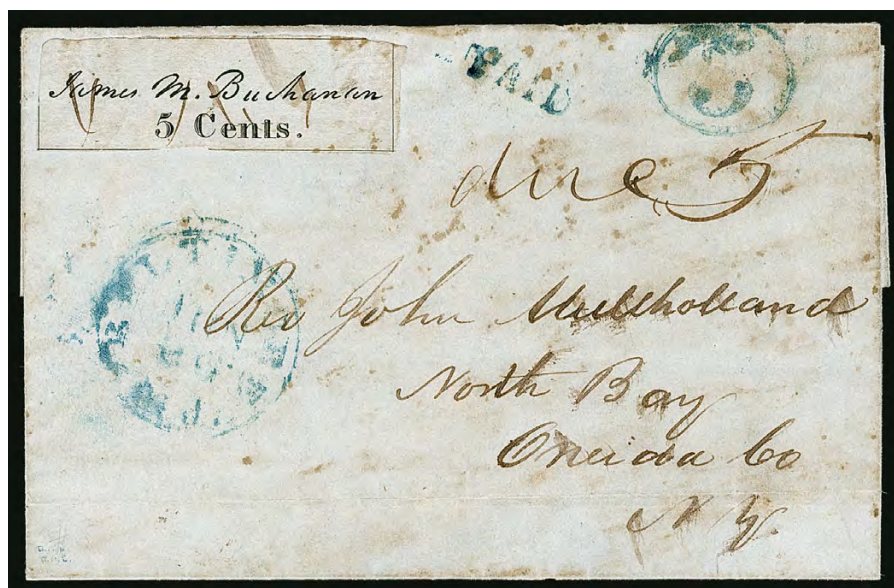 James M. Buchanan
5 Cents.
PAID
5
due 5
Rev John Mullholland
North Bay
Oneida Co
N Y.